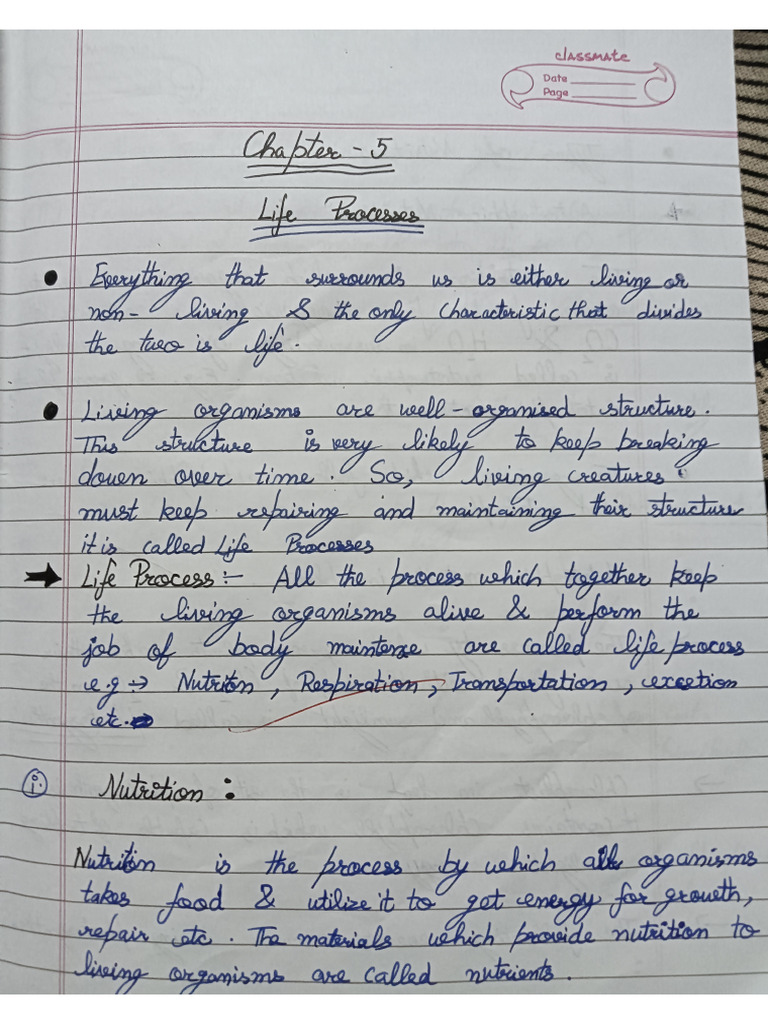 classmate
Date
Page
Chapter - 5
Life Processes
• Everything that surrounds us is either living or
non- living & the only characteristic that divides
the two is life.
• Living organisms are well-organised structure.
This structure is very likely to keep breaking
down over time. So, living creatures
must keep repairing and maintaining their structure
it is called Life Processes
→ Life Process :- All the process which together keep
the living organisms alive & perform the
job of body maintenxe are called life process
e.g → Nutriton, Respiration, Transportation, excretion
etc.
i. Nutrition :
Nutrition is the process by which all organisms
takes food & utilize it to get energy for growth,
repair etc. The materials which provide nutrition to
living organisms are called nutrients.